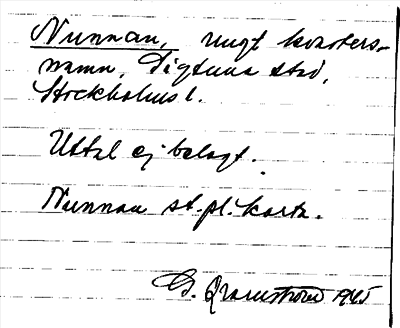 Nunnan, ungt kvarters-
namn, Sigtuna stad,
Stockholms l.
Uttal ej belagt.
Nunnan st.pl. karta.
G. 1945